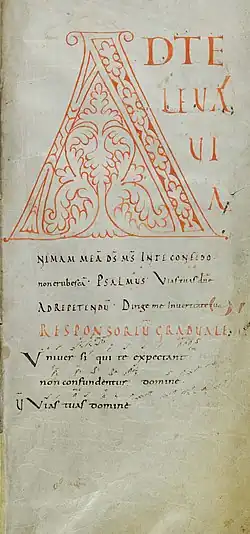 AD TE
LEUA
UI
A
NIMAM MEĀ DS MS INTE CONFIDO
non erubescā · PSALMUS Vias tuas dne
AD REPETENDŪ · Dirige me in veritate tua
RESPONSORIŪ GRADUALE
Vniver si qui te expectant
non confundentur domine
V Vias tuas domine